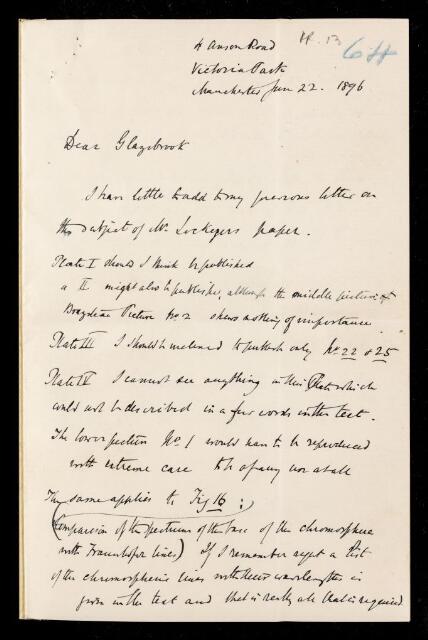 4 Anson Road
Victoria Park
Manchester June 22. 1896
Dear Glazebrook
I have little to add to my previous letter on
the subject of Mr Lockyers paper.
Plate I should I think be published
a II might also be published, although the middle picture of
Picture No 2 shews nothing of importance.
Plate III I should be inclined to publish only No 22 & 25
Plate IV I cannot see anything in this Plate which
could not be described in a few words in the text.
The lower picture No 1 would have to be reproduced
with extreme care to be of any use at all
The same applies to Fig 16 :
(Comparison of the spectrum of the base of the chromosphere
with Fraunhofer lines) If I remember right a list
of the chromospheric lines with their wavelengths is
given in the text and that is really all that is required.